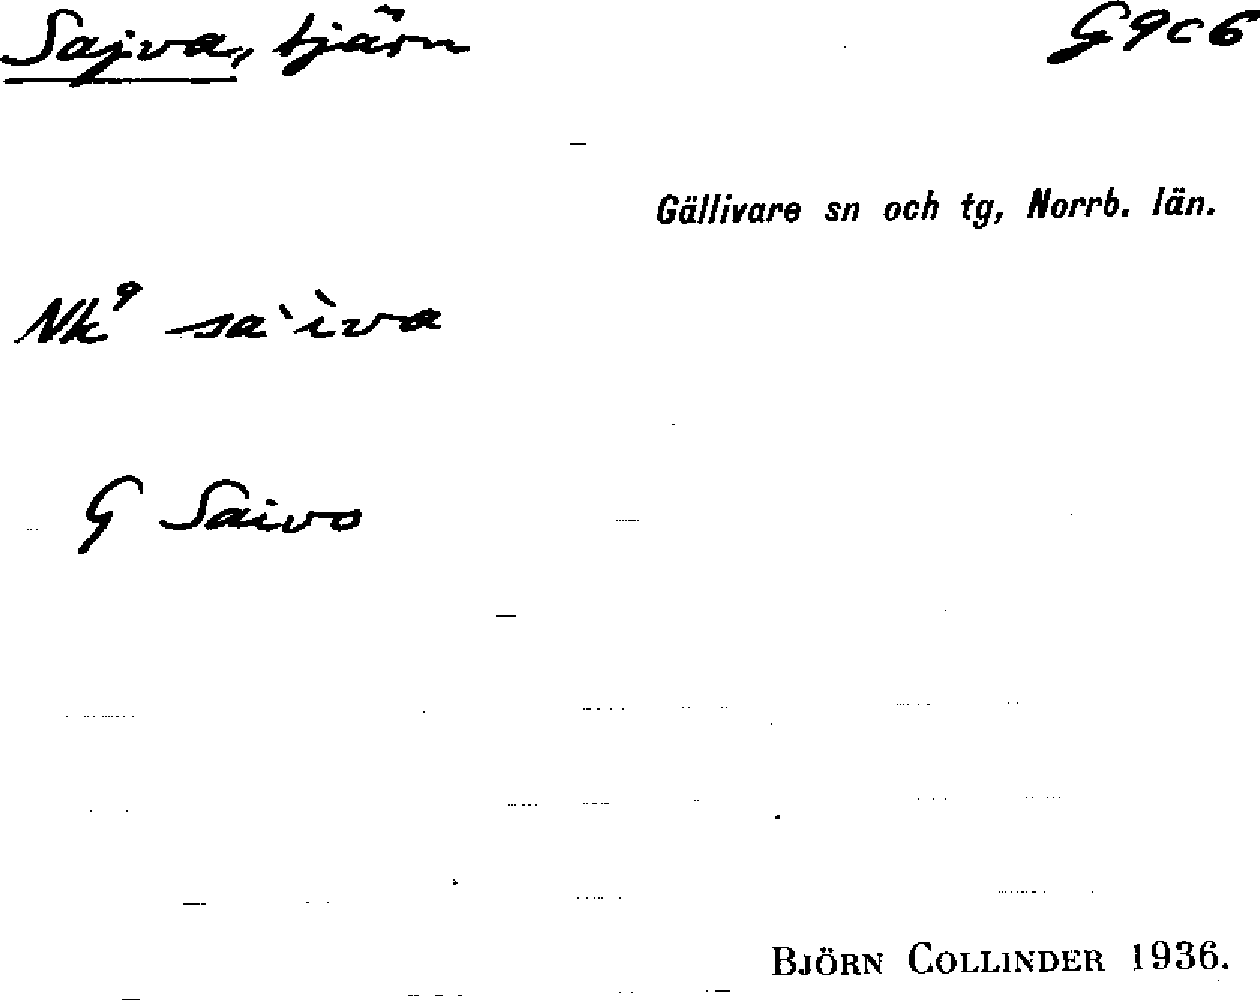 Sajva, tjärn G9c6
Gällivare sn och tg, Norrb. län.
Nk⁹ sa`ìva
G Saivo
BJÖRN COLLINDER 1936.